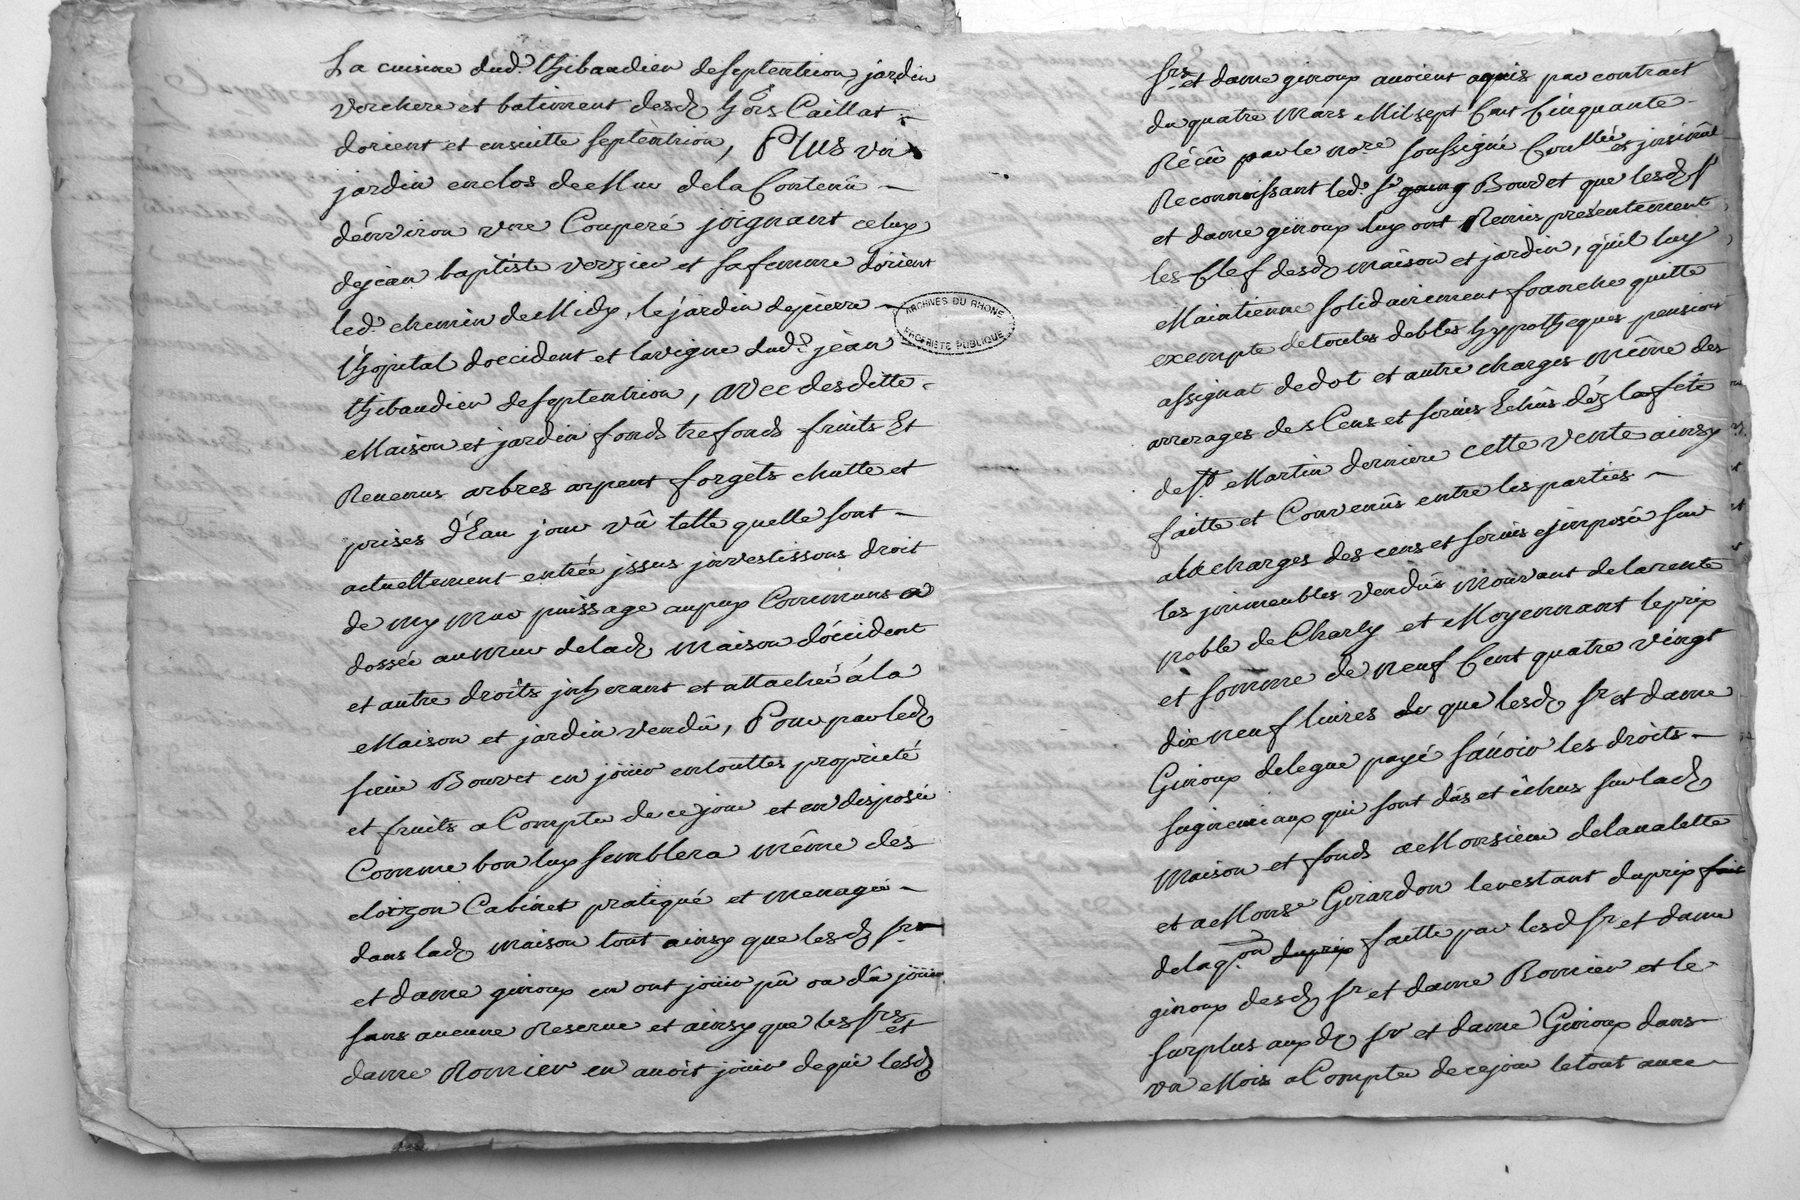 La cuisine dud. thibaudier de septentrion jardin
verchere et batiment desd hoirs Caillat
dorient et ensuitte septentrion, PLUS un
jardin enclos de Mur de la Contenû
dénviron une Couperé joignant celuy
de jean baptiste verzier et sa femme d'orient
led. chemin de Midy, le jardin de pierre
thopital doccident et la vigne dud. jean
thibaudier de septentrion, avec desditte
Maison et jardin fonds trefonds fruits Et
Revenus arbres arpent forgets chutte et
prises d'Eau jour vû telle quelle sont
actuellement entrée jssus jnvestissons droit
de my mur puissage au puy Commun a
dossée au mur de lad maison d'óccident
et autre droits jnherant et attachée á la
Maison et jardin vendû, Pour par led
sieur Bourret en joüir en touttes proprieté
et fruits a Compter de ce jour et en disposée
Comme bon luy semblera même des
cloizon Cabinet pratiqué et menagée
dans lad maison tout ainsy que lesd srs
et dame giroup en ont joüir pû ou dû joüir
sans aucune Reserve et ainsy que les srs et
dame Romier en avoit joüir de qui lesd
ARCHIVES DU RHONE
PROPRIETE PUBLIQUE
srs et dame giroup avoient aquis par contract
du quatre Mars Mil sept Cent Cinquante
Récû par le nore soussigné Conllée et jnsinüé
Reconnoissant led. sr Bourret que lesd sr
et dame giroup luy ont Remis présentement
les Clef desd maison et jardin, quil luy
Maintienne solidairement franche quitte
exempte de toutes debtes hypotheques pension
assignat de dot et autre charges même des
arrerages des Cens et servis Echûs déz la fête
de st. Martin derniere cette vente ainsy
faitte et Convenûs entre les parties
aux charges des cens et servis jmposée sur
les jmmeubles vendûs mouvant de la rente
noble de Charly et Moyennant le prix
et somme de neuf Cent quatre vingt
dix neuf livres que lesd sr et dame
Giroup delegue payé sávoir les droits
seigneuriaux qui sont dûs et êchus sur lad
maison et fonds a Monsieur de lavalette
et a Monsr Girardon le restant du prix
de laqon du prix faitte par lesd sr et dame
giroup desd sr et dame Romier et le
surplus aux d sr et dame Giroup dans
un Mois a Compter de ce jour le tout avec